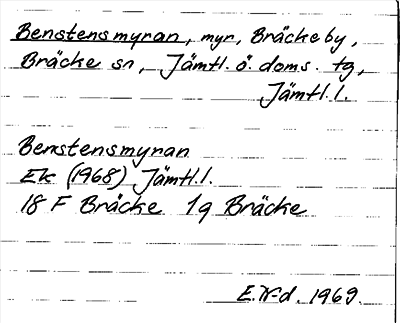 Benstensmyran, myr, Bräcke by,
Bräcke sn, Jämtl. ö. doms. tg,
Jämtl. l.
Benstensmyran
Ek (1968) Jämtl. l.
18 F Bräcke 1g Bräcke
1969.